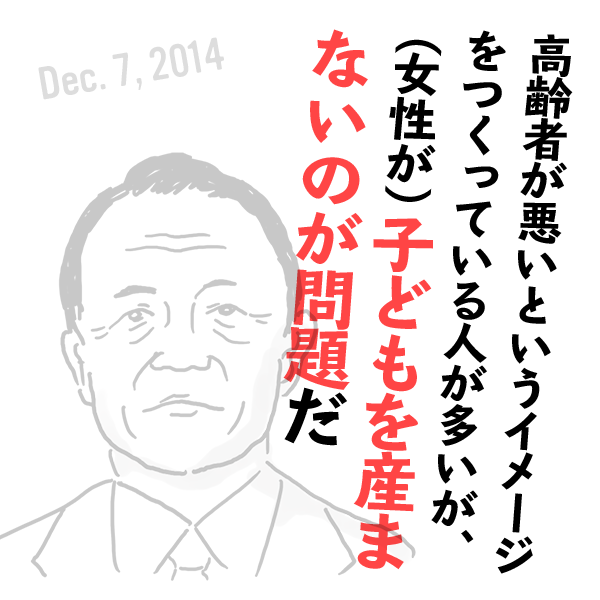 高齢者が悪いというイメージ
をつくっている人が多いが、
(女性が)子どもを産ま
ないのが問題だ
Dec. 7, 2014